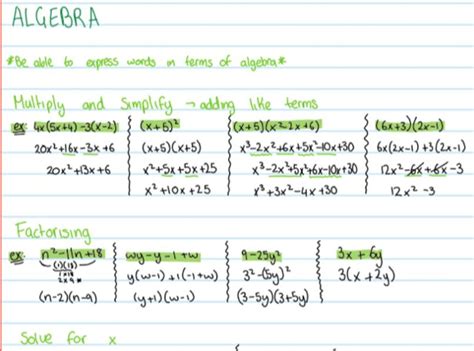 ALGEBRA
*Be able to express words in terms of algebra*
Multiply and Simplify → adding like terms
ex: 4x(5x+4)-3(x-2)
20x²+16x-3x+6
20x²+13x+6
(x+5)²
(x+5)(x+5)
x²+5x+5x+25
x²+10x+25
(x+5)(x²-2x+6)
x³-2x²+6x+5x²-10x+30
x³-2x²+5x²+6x-10x+30
x³+3x²-4x+30
(6x+3)(2x-1)
6x(2x-1)+3(2x-1)
12x²-6x+6x-3
12x²-3
Factorising
ex: n²-11n+18
(1)(18)
1x18
2x9
(n-2)(n-9)
wy-y-1+w
y(w-1)+1(-1+w)
(y+1)(w-1)
9-25y²
3²-(5y)²
(3-5y)(3+5y)
3x+6y
3(x+2y)
Solve for x